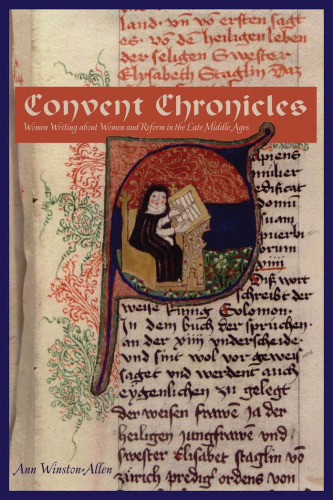 land. vn̄ von ersten sagt
es. vō dē heiligen leben
der seligen Swester
Elysabeth Staglin Daz
Convent Chronicles
Women Writing about Women and Reform in the Late Middle Ages
Sapiens
mulier
edificat
domū
suam
puerbi
orum
xiiii
Diß wort
schreibt der
weise kunig Solomon.
In dem buch der spruchen.
an der xiiii underscheide.
vnd sint wol vor geweis
saget vnd werdent auch
eygenlichen zu gelegt
der weisen frawen ja der
heiligen jungfrawē vnd
swester Elisabet staglin vō
zürich predig ordens von
Ann Winston-Allen